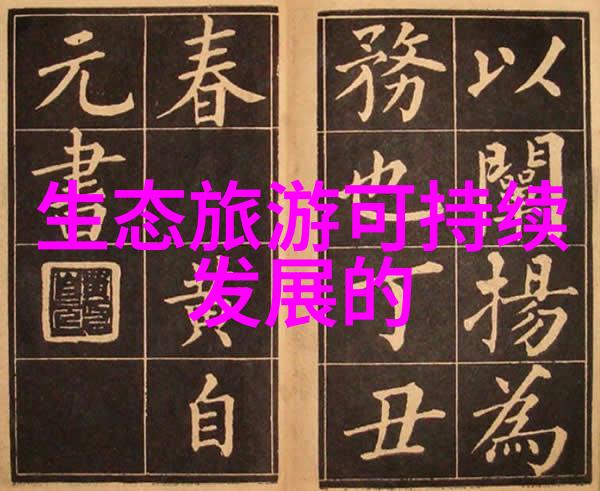 生态旅游可持续
发展的
以闡揚為
務也丁丑
春黄自
元書